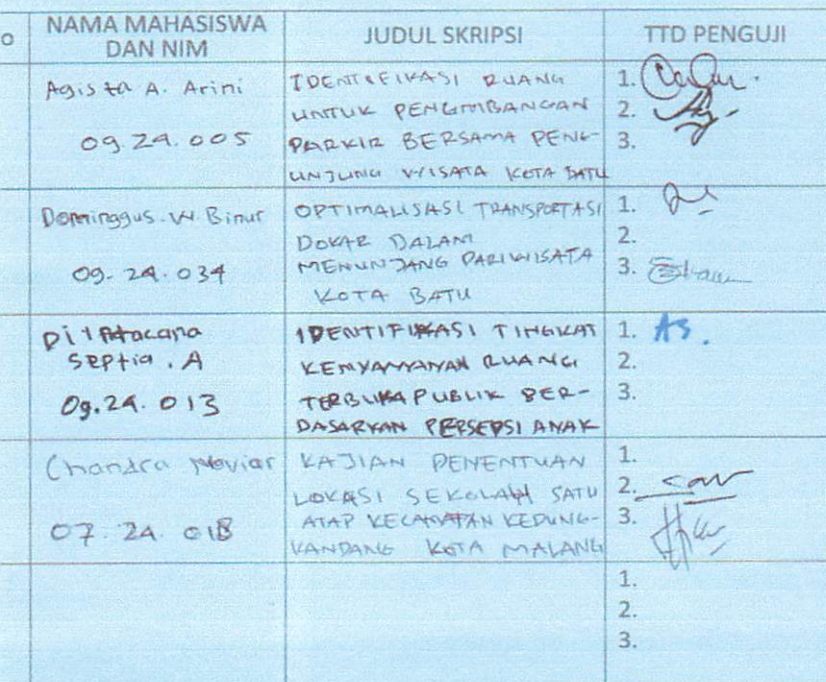 o
NAMA MAHASISWA
DAN NIM
JUDUL SKRIPSI
TTD PENGUJI
Agista A. Arini
09.24.005
IDENTIFIKASI RUANG
UNTUK PENGMBANGAN
PARKIR BERSAMA PENG-
UNJUNG WISATA KOTA BATU
1.
2.
3.
Dominggus. W. Binur
09.24.034
OPTIMALISASI TRANSPORTASI
DOKAR DALAM
MENUNJANG PARIWISATA
KOTA BATU
1.
2.
3.
Septia. A
09.24.013
IDENTIFIKASI TINGKAT
KENYAMANAN RUANG
TERBUKA PUBLIK BER-
DASARKAN PERSEPSI ANAK
1.
2.
3.
Chandra
07.24.018
KAJIAN PENENTUAN
LOKASI SEKOLAH SATU
ATAP KECAMATAN KEDUNG-
KANDANG KOTA MALANG
1.
2.
3.
1.
2.
3.